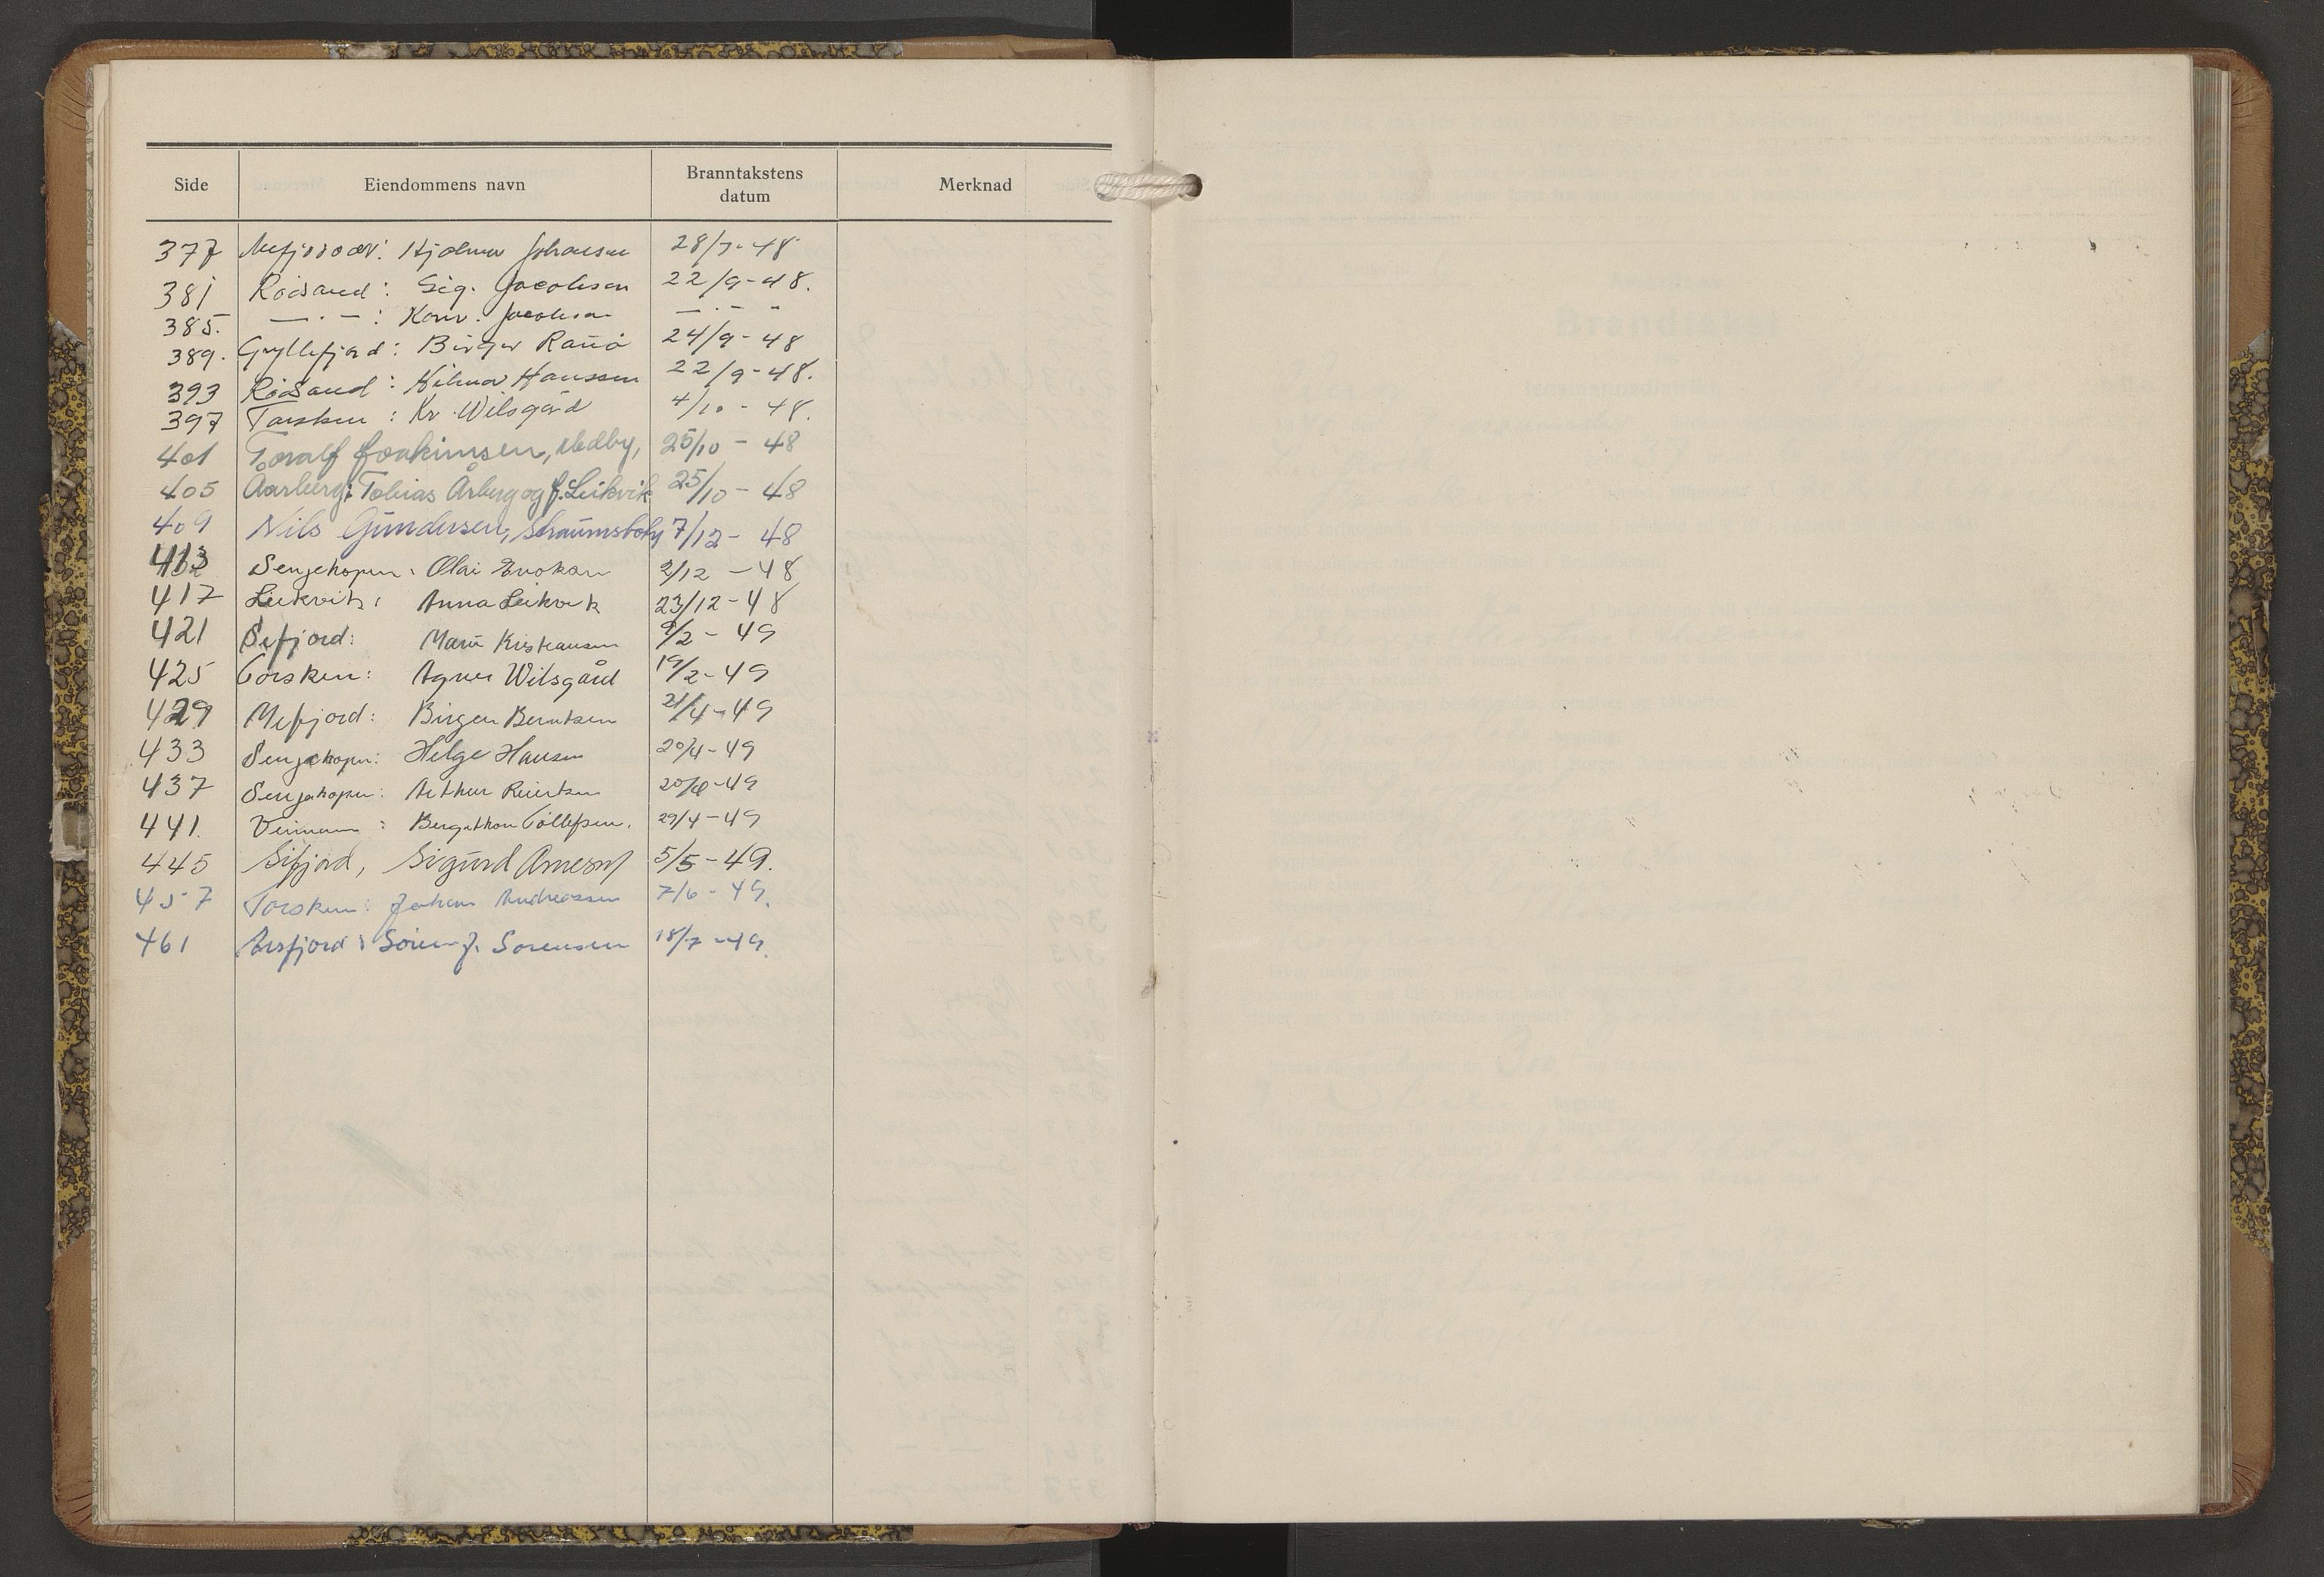 Side Eiendommens navn Branntakstens datum Merknad
377 Mefjordvær: Hjalmar Johansen 28/7-48
381 Rødsand: Sig. Jacobsen 22/9-48.
385. — . — : Konr. Jacobsen — . — -
389. Gryllefjord: Birger Ranø 24/9-48
393 Rødsand: Hilmar Hanssen 22/9-48.
397 Torsken: Kr. Wilsgård 4/10-48.
401 Toralf Joakimsen, Medby, 25/10-48
405 Aarberg: Tobias Årberg og J. Leikvik 25/10-48
409 Nils Gundersen, Straumsbotn 7/12-48
413 Senjehopen: Olai Enoksen 2/12-48
417 Leikvik: Anna Leikvik 23/12-48
421 Sifjord: Marie Kristiansen 9/2-49
425 Torsken: Agnes Wilsgård 19/2-49
429 Mefjord: Birger Berntsen 21/4-49
433 Senjehopen: Helge Hansen 20/4-49
437 Senjahopen: Arthur Reiertsen 20/4-49
441. : Bergithon Tollefsen. 29/4-49
445 Sifjord, Sigurd Arnesen 5/5-49.
457 Torsken: Johan Andreassen 7/6-49.
461 Ersfjord: Søren J. Sørensen 18/7-49.